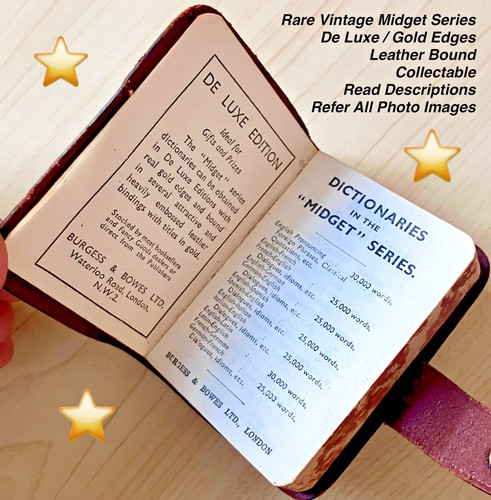 Rare Vintage Midget Series
De Luxe / Gold Edges
Leather Bound
Collectable
Read Descriptions
Refer All Photo Images
DE LUXE EDITION
Ideal for
Gifts and Prizes
The "Midget" series
dictionaries can be obtained
in De Luxe Editions with
real gold edges and bound
in several attractive and
heavily embossed leather
bindings with titles in gold.
Stocked by most booksellers
and Fancy Goods dealers or
direct from the Publishers
BURGESS & BOWES LTD.
Waterloo Road, London.
N.W.2
DICTIONARIES
IN THE
"MIDGET" SERIES.
English Pronouncing
Foreign Phrases, Classical
Quotations, etc. 30,000 words,
French-English
English-French
Dialogues, idioms, etc. 25,000 words,
English-German
Dialogues, idioms, etc. 25,000 words,
English-Spanish
Spanish-English
Dialogues, idioms, etc. 25,000 words,
Italian-English
Dialogues, idioms, etc. 25,000 words,
English-Latin
Latin-English
French-German 30,000 words,
German-French
Dialogues, idioms, etc. 25,000 words,
BURGESS & BOWES LTD., LONDON